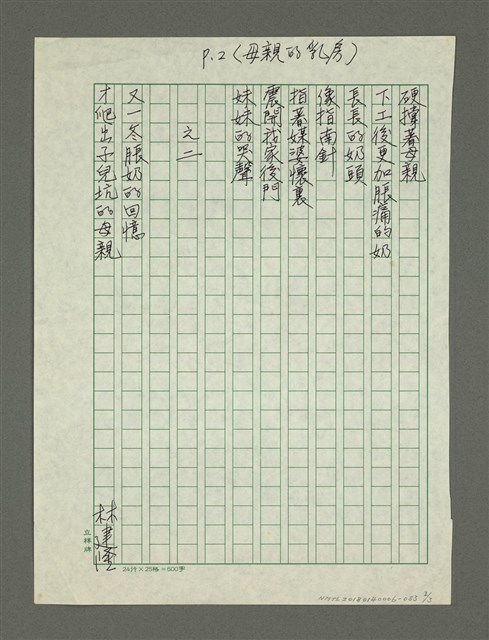 P.2(母親的乳房)
硬撑著母親
下工後更加脹痛的奶
長長的奶頭
像指南針
指著媒婆懷裏
震開我家後門
妹妹的哭聲
之二
又一冬脹奶的回憶
才爬出子兒坑的母親
林建隆
立輝牌
24行×25格=600字
NMTL20180160006-053 2/3